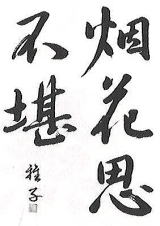 烟花思
不堪
雅子